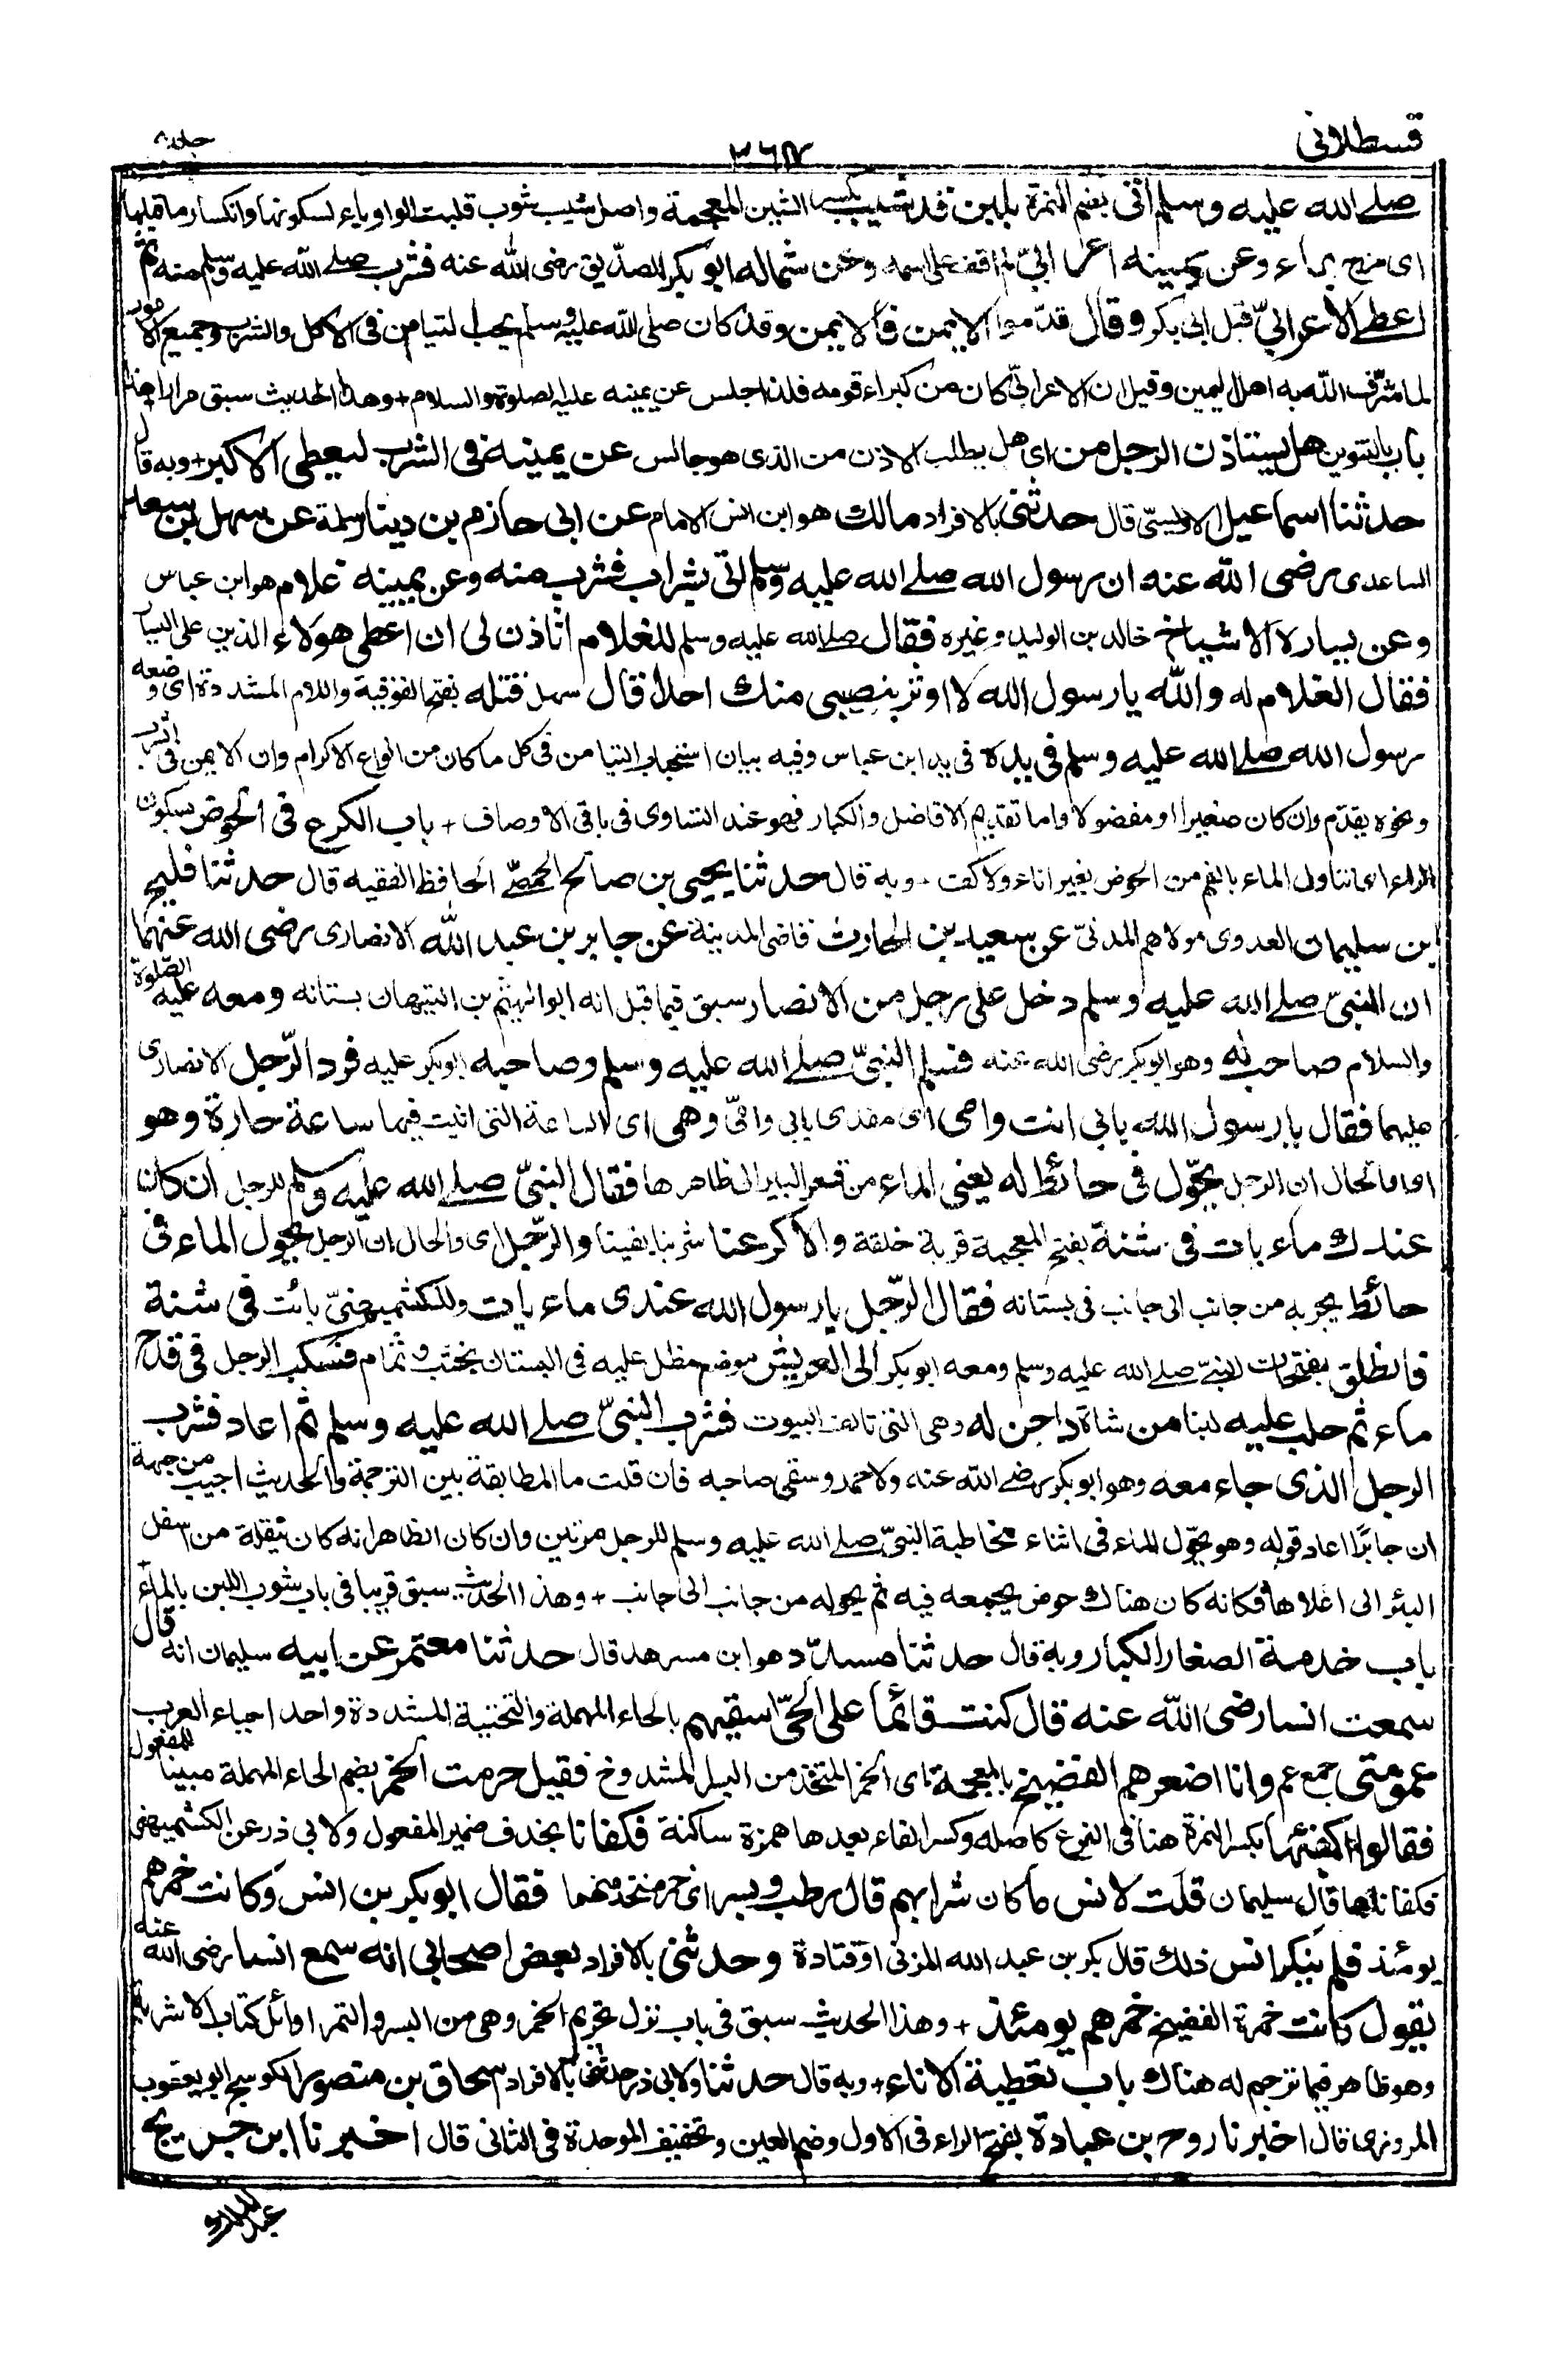 قسطلانی
صلے الله عليه وسلم اُتى بضم الهمزة بلبن قد شيب بكسر الشين المعجمة واصل شيب شوب قلبت الواو ياء لسكونها وانكسار ما قبلها
اى مزج بماء وعن يمينه اعرابىّ لم اقف على اسمه وعن شماله ابو بكر الصدّيق رضى الله عنه فشرب صلے الله عليه وسلم منه ثم
اعطى الاعرابىّ قبل ابى بكر وقال قدّموا الايمن فالايمن وقد كان صلى الله عليه وسلم يحب التيامن فى الاكل والشرب وجميع الامور
لما شرّف الله به اهل اليمين وقيل ان الاعرابىّ كان من كبراء قومه فلذا جلس عن يمينه عليه الصلوة والسلام + وهذا الحديث سبق مرارا
باب بالتنوين هل يستاذن الرجل من اى هل يطلب الاذن من الذى هو جالس عن يمينه فى الشرب ليعطى الاكبر + وبه قال
حدثنا اسماعيل الاويسىّ قال حدثنى بالافراد مالك هو ابن انس الامام عن ابى حازم بن دينار سلمة عن سهل بن سعد
الساعدى رضى الله عنه ان رسول الله صلے الله عليه وسلم اتى بشراب فشرب منه وعن يمينه غلام هو ابن عباس
وعن يساره الاشياخ خالد بن الوليد وغيره فقال صلے الله عليه وسلم للغلام اتاذن لى ان اعطى هولاء الذين على اليسار
فقال الغلام له والله يا رسول الله لا اوثر بنصيبى منك احدا قال سهل فتله بفتح الفوقية واللام المشددة اى وضعه
رسول الله صلے الله عليه وسلم فى يده فى يد ابن عباس وفيه بيان استحباب التيامن فى كل ما كان من انواع الاكرام وان الايمن فى الشرب
ونحوه يقدّم وان كان صغيرا او مفضولا واما تقديم الافاضل والكبار فهو عند التساوى فى باقى الاوصاف + باب الكرع فى الحوض بسكون
الراء اى تناول الماء بالفم من الحوض بغير اناء ولا كف - وبه قال حدثنا يحيى بن صالح الحمصىّ الحافظ الفقيه قال حدثنا فليح
بن سليمان العدوى مولاهم المدنىّ عن سعيد بن الحارث قاضى المدينة عن جابر بن عبد الله الانصارى رضى الله عنهما
ان النبىّ صلے الله عليه وسلم دخل على رجل من الانصار سبق فيما قبل انه ابو الهيثم بن التيهان بستانه ومعه عليه الصّلوة
والسلام صاحب له وهو ابو بكر رضى الله عنه فسلم النبىّ صلے الله عليه وسلم وصاحبه ابو بكر عليه فرد الرّجل الانصارى
عليهما فقال يا رسول الله بابى انت وامى اى مفدى بابى وامّى وهى اى الساعة التى اتيت فيها ساعة حارة وهو
اى والحال ان الرجل يحوّل فى حائط له يعنى الماء من قعر البير الى ظاهرها فقال النبىّ صلے الله عليه وسلم للرجل ان كان
عندك ماء بات فى شنة بفتح المعجمة قربة خلقة والا كرعنا شربنا بفينا والرّجل اى والحال ان الرجل يحول الماء فى
حائط يجريه من جانب الى جانب فى بستانه فقال الرّجل يا رسول الله عندى ماء بات وللكشميهنىّ بائت فى شنة
فانطلق بفتحات النبىّ صلے الله عليه وسلم ومعه ابو بكر الى العريش موضع مظل عليه فى البستان بخشب وثمام فسكب الرجل فى قدح
ماء ثم حلب عليه لبنا من شاة داجن له وهى التى تالف البيوت فشرب النبىّ صلے الله عليه وسلم ثم اعاد فشرب
الرجل الذى جاء معه وهو ابو بكر رضى الله عنه ولاحمد وسقى صاحبه فان قلت ما المطابقة بين الترجمة والحديث اجيب من جهة
ان جابرًا اعاد قوله وهو يحوّل الماء فى اثناء مخاطبة النبىّ صلے الله عليه وسلم للرجل مرتين وان كان الظاهر انه كان ينقله من اسفل
البئر الى اعلاها فكانه كان هناك حوض يجمعه فيه ثم يحوله من جانب الى جانب + وهذا الحديث سبق قريبا فى باب شوب اللبن بالماء +
باب خدمة الصغار الكبار وبه قال حدثنا مسدّد هو ابن مسرهد قال حدثنا معتمر عن ابيه سليمان انه قال
سمعت انسا رضى الله عنه قال كنت قائما على الحىّ اسقيهم بالحاء المهملة والتحتية المشددة واحد احياء العرب
عمومتى جمع عم وانا اصغرهم الفضيخ بالمعجمة اى الخمر المتخذ من البسر المشدوخ فقيل حرمت الخمر بضم الحاء المهملة مبينا للمفعول
فقالوا اكفئها بكسر الهمزة هنا فى الفرع كاصله وكسر الفاء بعدها همزة ساكنة فكفانا بحذف ضمير المفعول ولابى ذر عن الكشميهنى
فكفاناها قال سليمان قلت لانس ما كان شرابهم قال رطب وبسر اى خمر متخذ منهما فقال ابو بكر بن انس وكانت خمرهم
يومئذ فلم ينكر انس ذلك قال بكر بن عبد الله المزنى او قتادة وحدثنى بالافراد بعض اصحابى انه سمع انسا رضى الله عنه
يقول كانت خمرة الفضيخ خمرهم يومئذ + وهذا الحديث سبق فى باب نزل تحريم الخمر وهى من البسر والتمر اوائل كتاب الاشربة
وهو ظاهر فيما ترجم له هناك باب تغطية الاناء + وبه قال حدثنا ولابى ذر حدثنى بالافراد اسحاق بن منصور الكوسج ابو يعقوب
المروزى قال اخبرنا روح بن عبادة بفتح الراء فى الاول وضم العين وتخفيف الموحدة فى الثانى قال اخبرنا ابن جريج